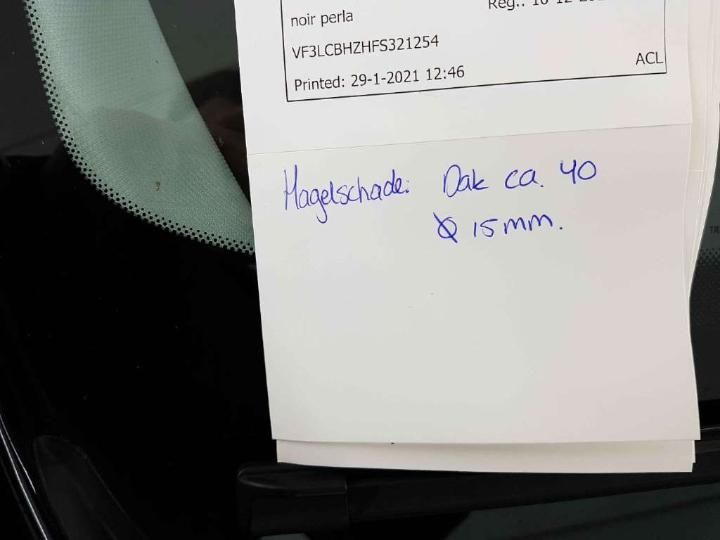 noir perla
VF3LCBHZHFS321254
Printed: 29-1-2021 12:46
ACL
Hagelschade: Dak ca. 40
Ø 15mm.